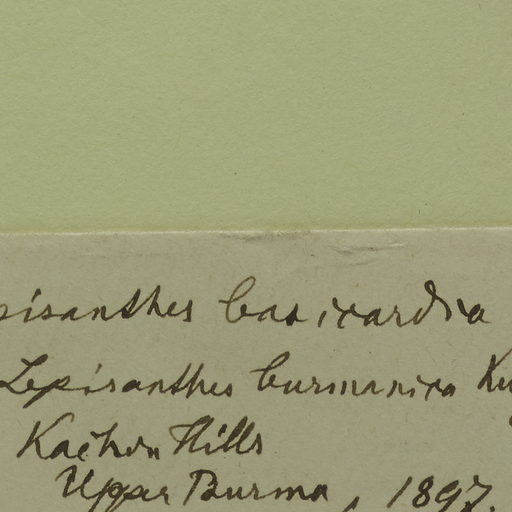 pisanthes basicardia
Lepisanthes burmanica Ku
Kachin Hills
Upper Burma, 1897.